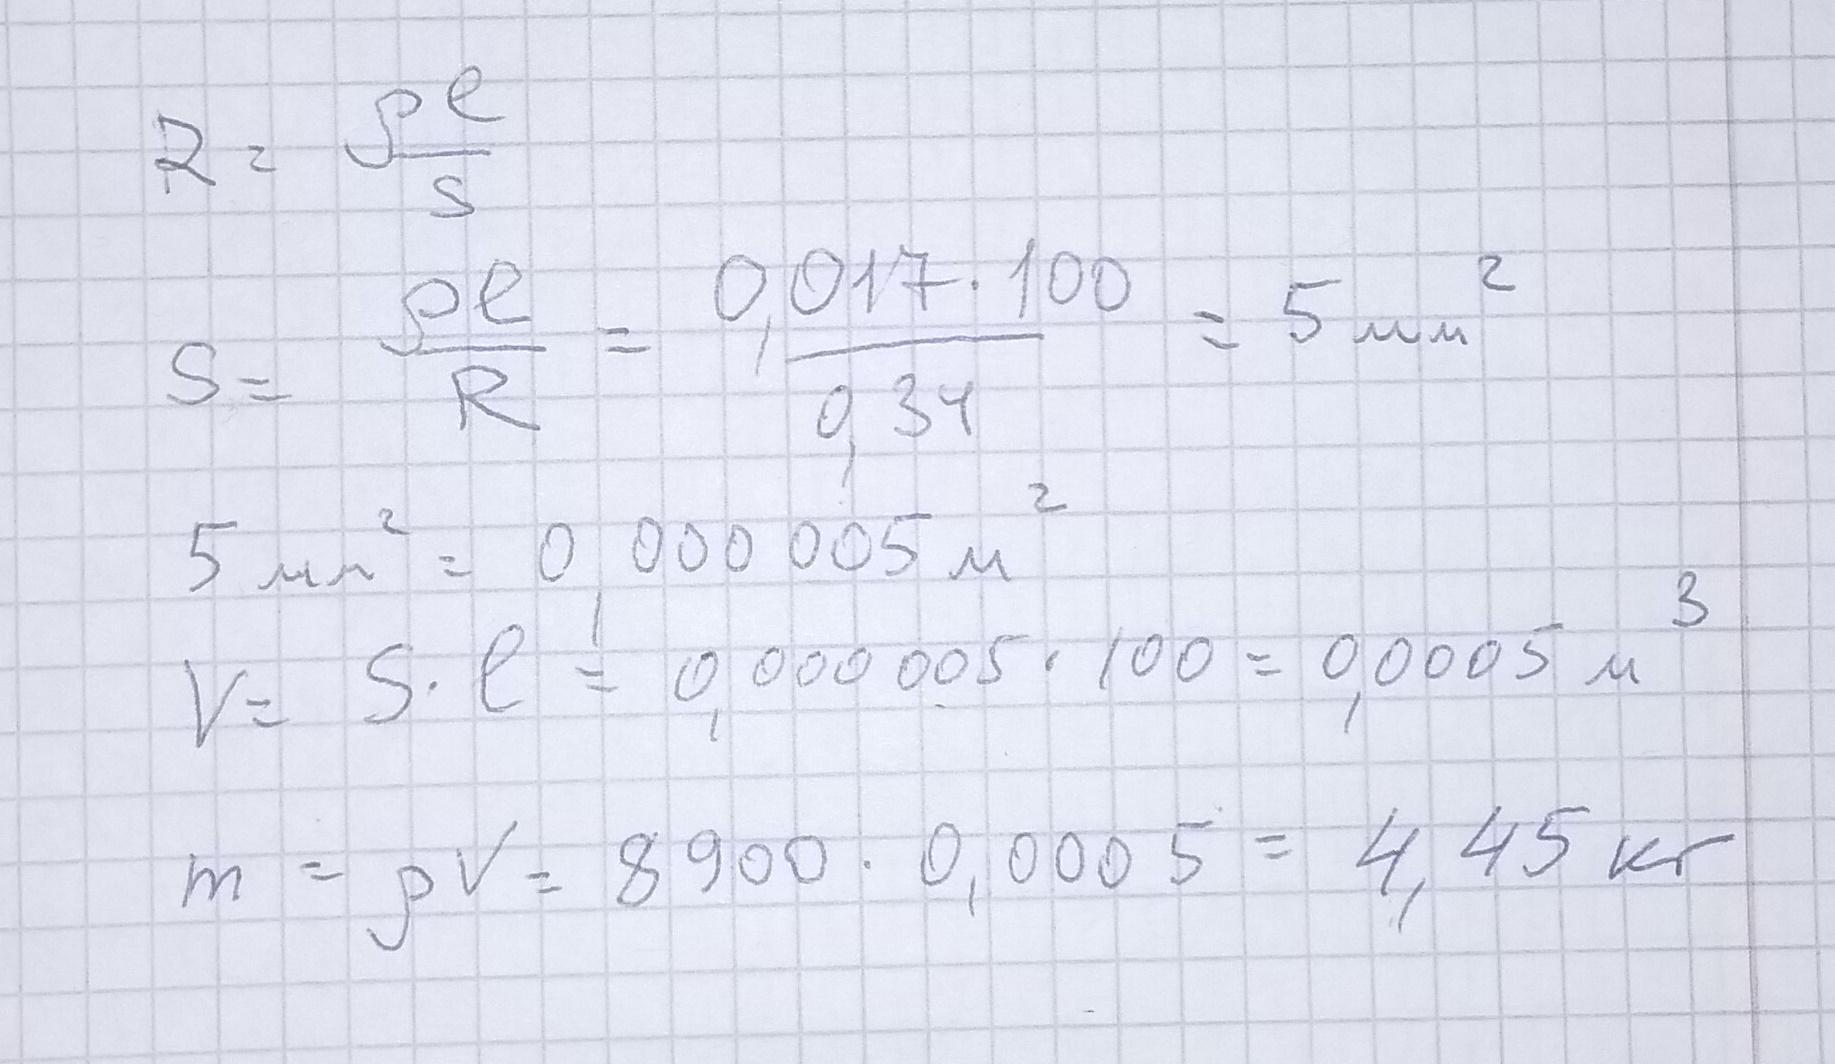 R = ρl/S
S = ρl/R = 0,017·100/0,34 = 5 мм²
5 мм² = 0,000005 м²
V = S·l = 0,000005·100 = 0,0005 м³
m = ρV = 8900·0,0005 = 4,45 кг